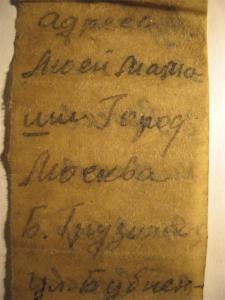 адреса
Моей Мама
ши Город
Москва
Б. Грузинск
ул. Бубнен-